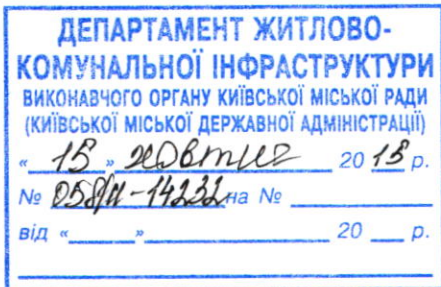 ДЕПАРТАМЕНТ ЖИТЛОВО-
КОМУНАЛЬНОЇ ІНФРАСТРУКТУРИ
ВИКОНАВЧОГО ОРГАНУ КИЇВСЬКОЇ МІСЬКОЇ РАДИ
(КИЇВСЬКОЇ МІСЬКОЇ ДЕРЖАВНОЇ АДМІНІСТРАЦІЇ)
« 15 » жовтня 20 15 р.
№ 058/И-14232 на №
від « » 20 р.